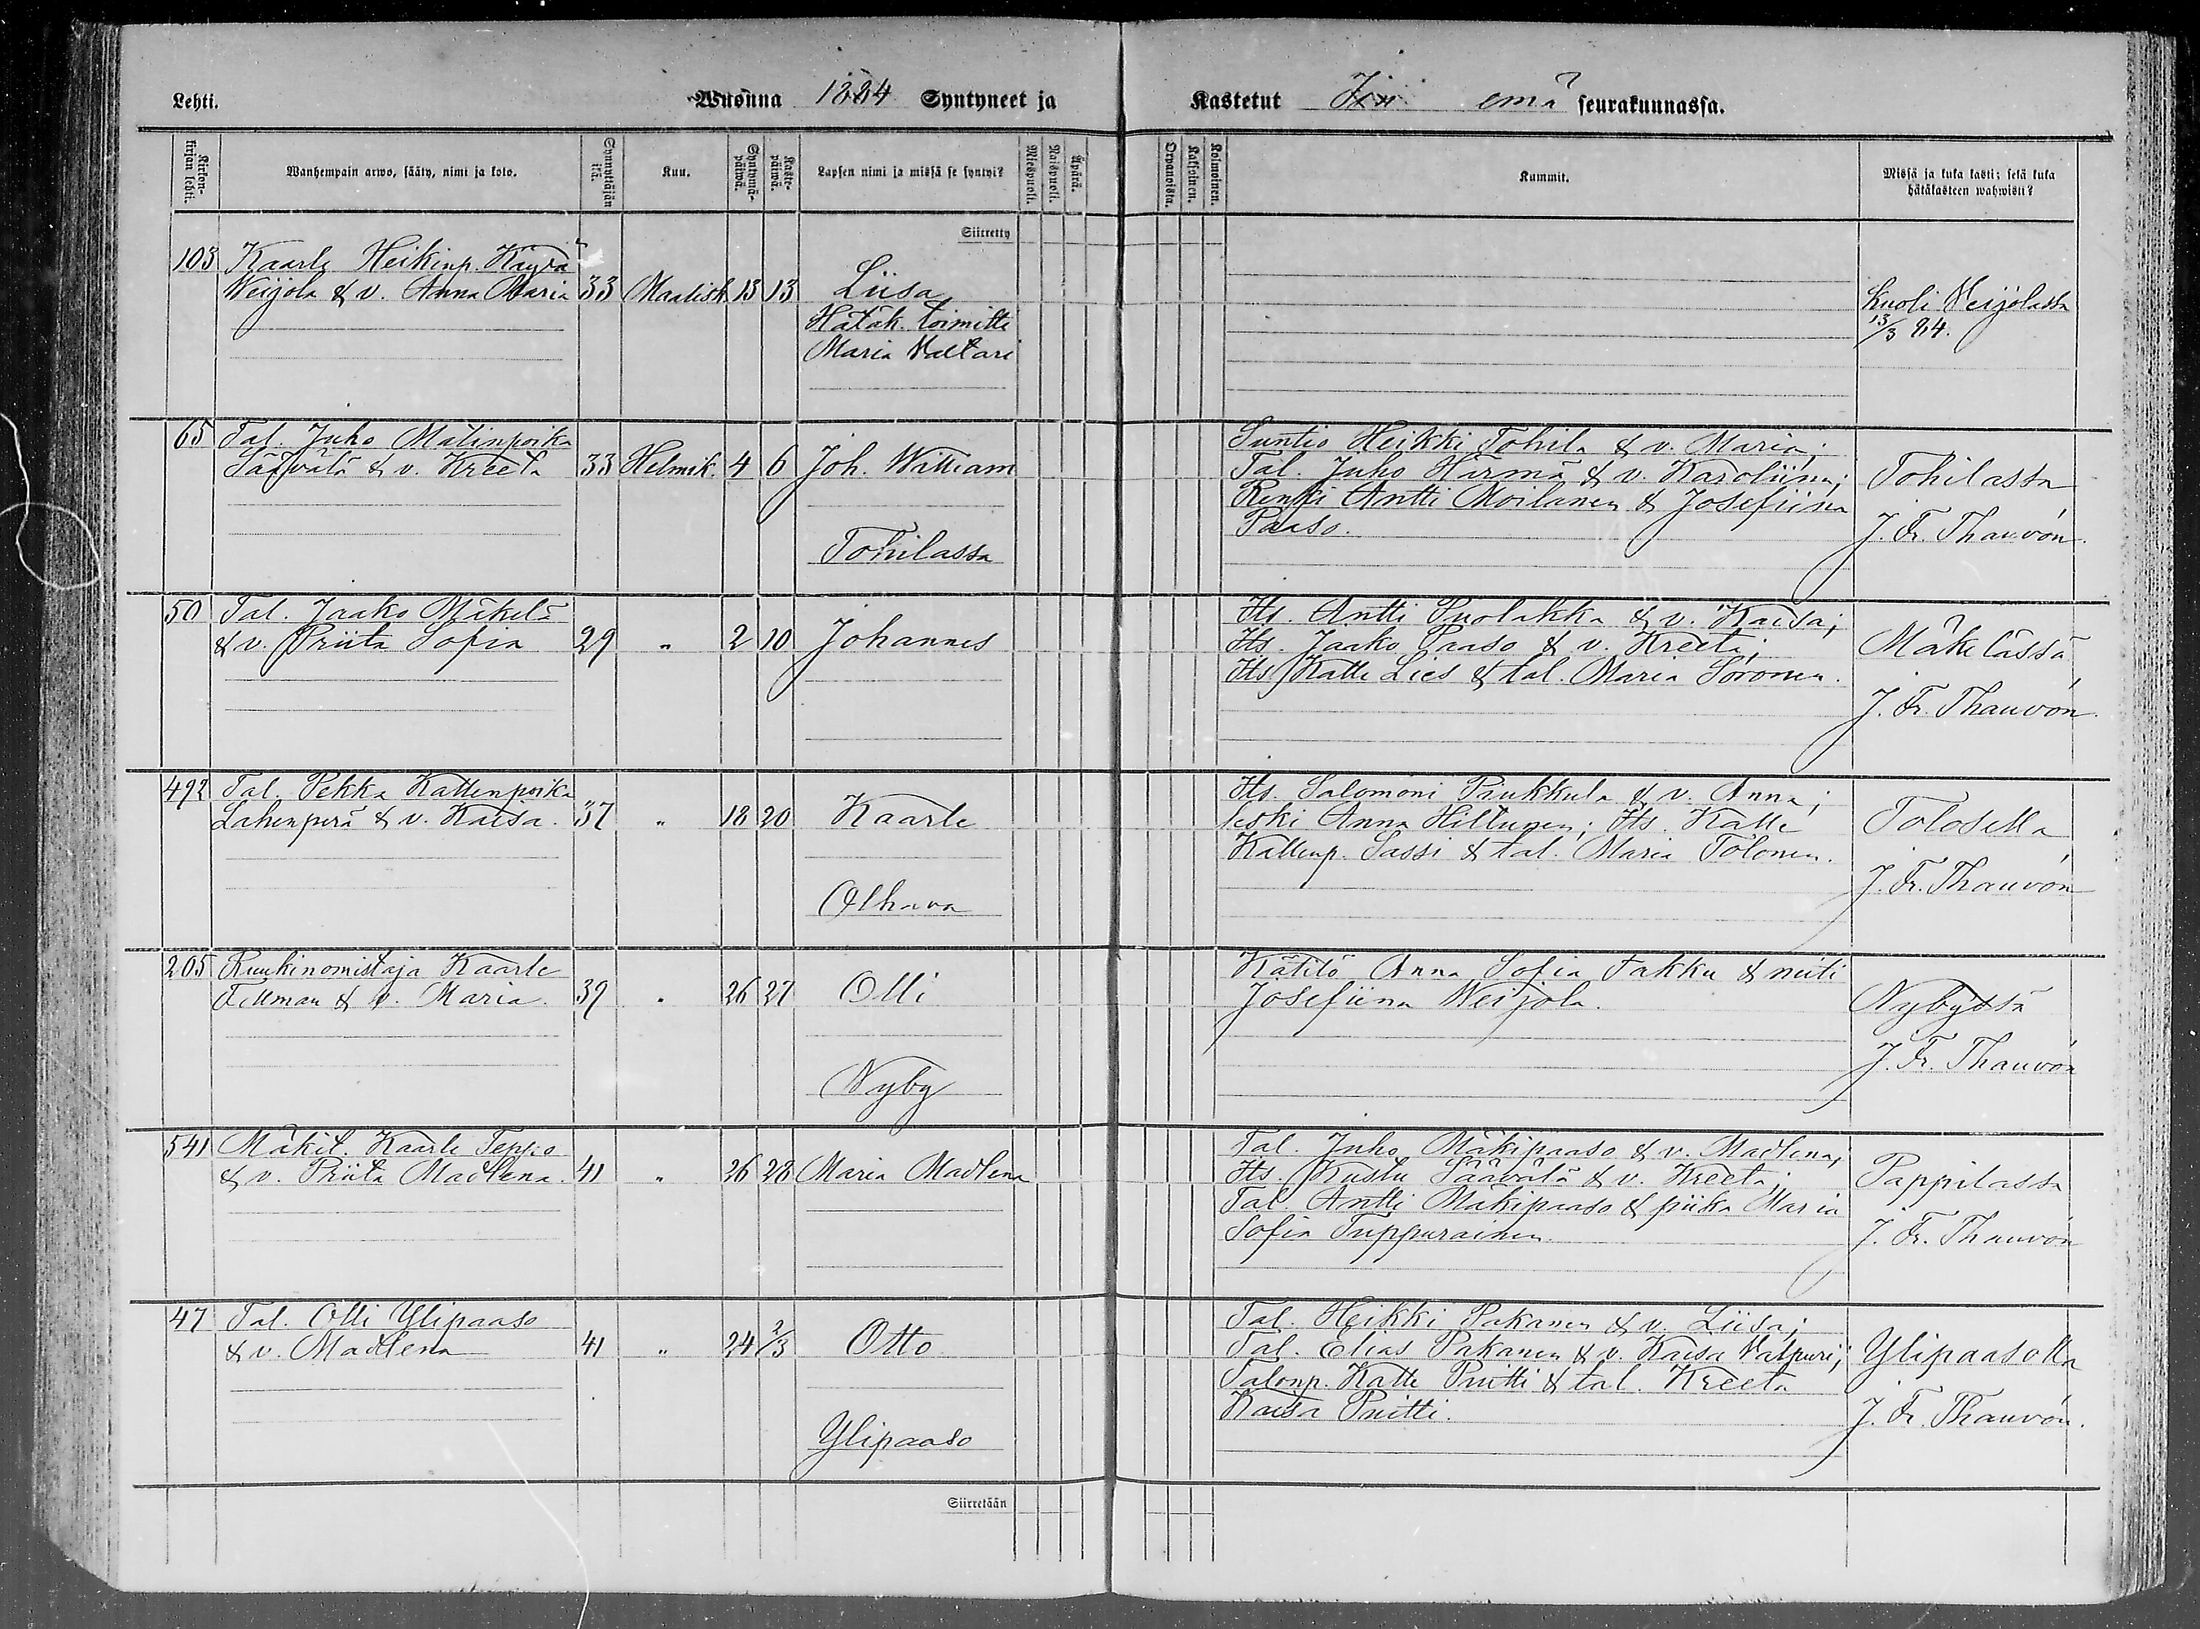 Lehti. Wuonna 1884 Syntyneet ja Kastetut Iin emä seurakunnassa.
Kirkonkirjan lehti. Wanhempain arwo, sääty, nimi ja koto. Synnyttäjän ikä. Kuu. Syntymäpäiwä. Kastepäiwä. Lapsen nimi ja missä se syntyi? Miespuoli. Naispuoli. Äpärä. Orpanoista. Kaksoinen. Kolmoinen. Kummit. Missä ja kuka kasti; sekä kuka hätäkasteen wahwisti?
Siirretty
103 Kaarle Heikinp. Käyrä
Weijola & v. Anna Maria 33 Maalisk. 13 13 Liisa
Hätäk. toimitti
Maria Valtari
Kuoli Veijolassa
13/3 84.
65 Tal. Juho Matinpoika
Säävälä & v. Kreeta 33 Helmik. 4 6 Joh. William
Tohilassa
Suntio Heikki Tohila & v. Maria;
Tal. Juho Härmä & v. Karoliina;
Renki Antti Moilanen & Josefiina
Paaso.
Tohilassa
J. Fr. Thauvón.
50 Tal. Jaako Mäkelä
& v. Priita Sofia 29 " 2 10 Johannes
Its. Antti Puolakka & v. Kaisa;
Its. Jaako Paaso & v. Kreeta;
Its. Kalle Lies & tal. Maria Soronen.
Mäkelässä
J. Fr. Thauvón.
492 Tal. Pekka Kallenpoika
Lahenperä & v. Kaisa. 37 " 18 20 Kaarle
Olhava
Its. Salomoni Paukkula & v. Anna;
Leski Anna Hiltunen; Its. Kalle
Kallenp. Sassi & tal. Maria Tolonen.
Tolosella
J. Fr. Thauvón
205 Ruukinomistaja Kaarle
Fellman & v. Maria. 39 " 26 27 Olli
Nyby
Kätilö Anna Sofia Fakku & neiti
Josefiina Weijola.
Nybyssä
J. Fr. Thauvón
541 Mäkit. Kaarle Teppo
& v. Priita Madlena. 41 " 26 28 Maria Madlena
Tal. Juho Mäkipaaso & v. Madlena;
Its. Kustu Säävälä & v. Kreeta;
Tal. Antti Mäkipaaso & piika Maria
Sofia Tuppurainen.
Pappilassa
J. Fr. Thauvón
47 Tal. Olli Ylipaaso
& v. Madlena 41 " 24 2/3 Otto
Ylipaaso
Tal. Heikki Pakanen & v. Liisa;
Tal. Elias Pakanen & v. Kaisa Valpuri;
Talonp. Kalle Priitti & tal. Kreeta
Kaisa Priitti.
Ylipaasolla
J. Fr. Thauvón.
Siirretään